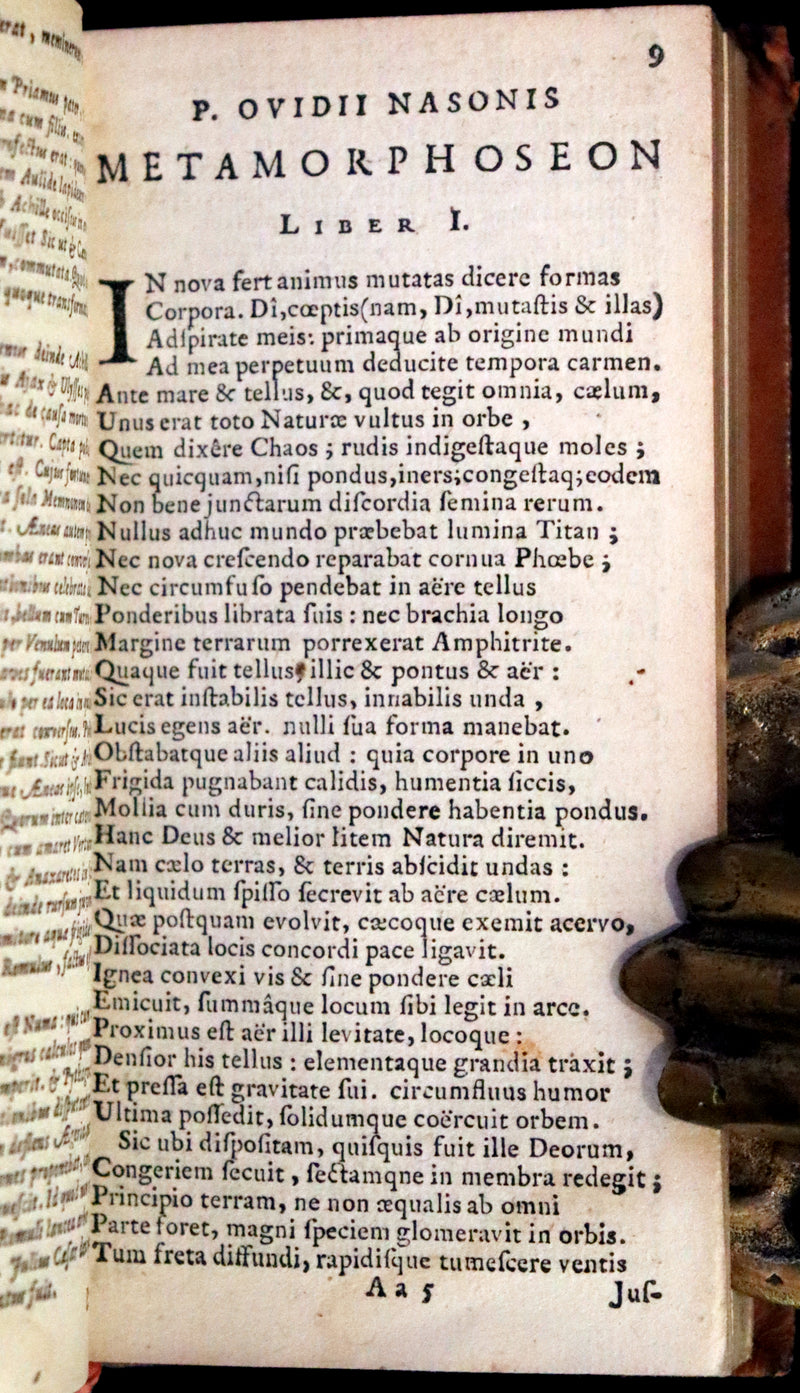 9
P. OVIDII NASONIS
METAMORPHOSEON
LIBER I.
IN nova fert animus mutatas dicere formas
Corpora. Dî,cœptis(nam, Dî,mutaſtis & illas)
Adſpirate meis: primaque ab origine mundi
Ad mea perpetuum deducite tempora carmen.
Ante mare & tellus, &, quod tegit omnia, cælum,
Unus erat toto Naturæ vultus in orbe ,
Quem dixêre Chaos ; rudis indigeſtaque moles ;
Nec quicquam,niſi pondus,iners;congeſtaq;eodem
Non bene junctarum diſcordia ſemina rerum.
Nullus adhuc mundo præbebat lumina Titan ;
Nec nova creſcendo reparabat cornua Phœbe ;
Nec circumfuſo pendebat in aëre tellus
Ponderibus librata ſuis : nec brachia longo
Margine terrarum porrexerat Amphitrite.
Quaque fuit tellus, illic & pontus & aër :
Sic erat inſtabilis tellus, innabilis unda ,
Lucis egens aër. nulli ſua forma manebat.
Obſtabatque aliis aliud : quia corpore in uno
Frigida pugnabant calidis, humentia ſiccis,
Mollia cum duris, ſine pondere habentia pondus.
Hanc Deus & melior litem Natura diremit.
Nam cælo terras, & terris abſcidit undas :
Et liquidum ſpiſſo ſecrevit ab aëre cælum.
Quæ poſtquam evolvit, cæcoque exemit acervo,
Diſſociata locis concordi pace ligavit.
Ignea convexi vis & ſine pondere cæli
Emicuit, ſummâque locum ſibi legit in arce.
Proximus eſt aër illi levitate, locoque :
Denſior his tellus : elementaque grandia traxit ;
Et preſſa eſt gravitate ſui. circumfluus humor
Ultima poſſedit, ſolidumque coërcuit orbem.
Sic ubi diſpoſitam, quiſquis fuit ille Deorum,
Congeriem ſecuit , ſectamqne in membra redegit ;
Principio terram, ne non æqualis ab omni
Parte foret, magni ſpeciem glomeravit in orbis.
Tum freta diffundi, rapidiſque tumeſcere ventis
A a 5
Juſ-